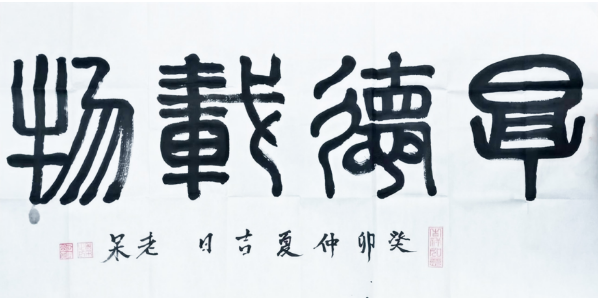 厚德載物
癸卯仲夏吉日 老呆